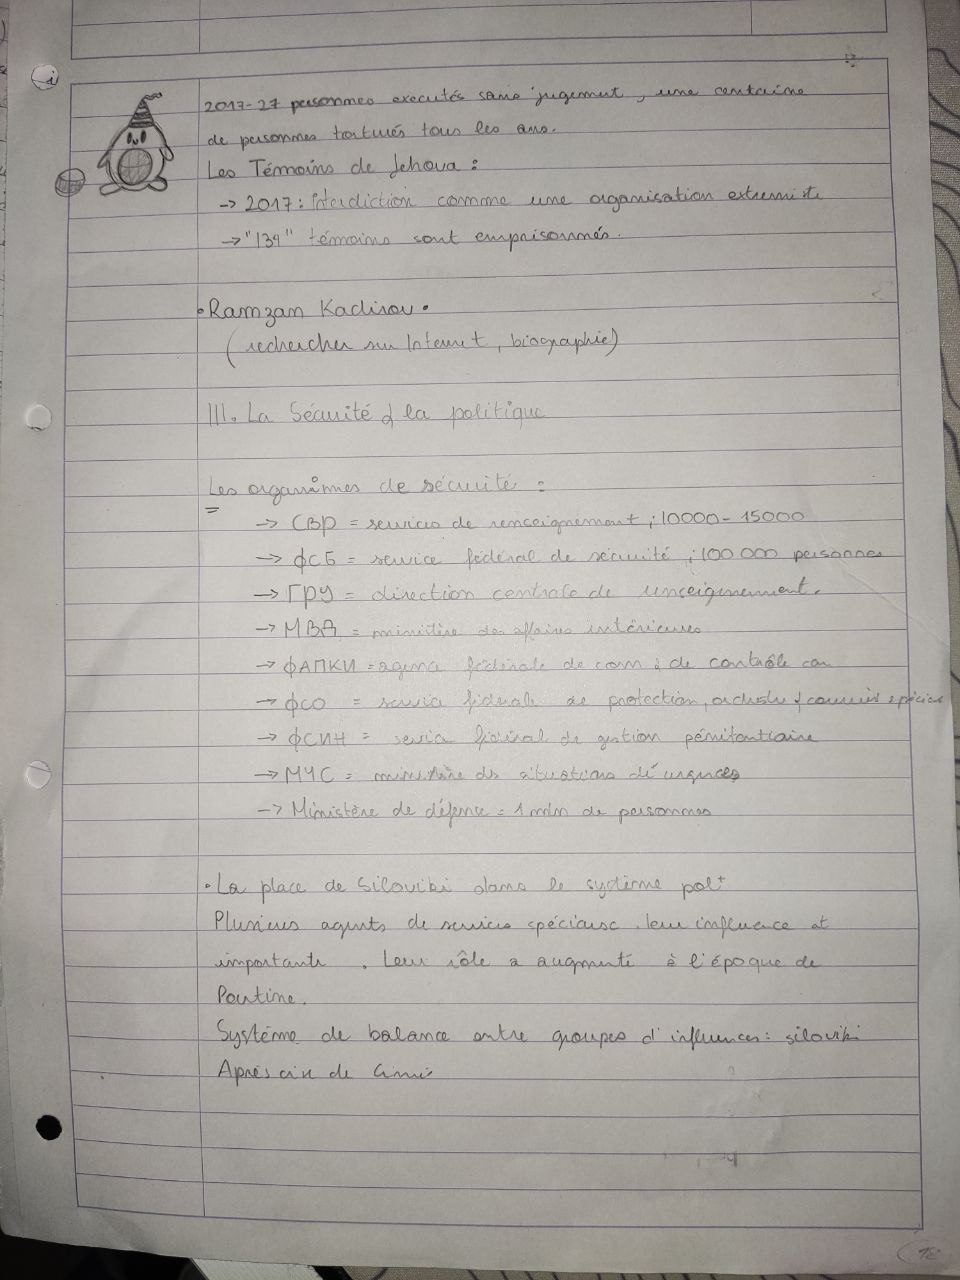 2017-27 personnes executés sans jugement, une centaine
de personnes torturés tous les ans.
Les Témoins de Jehova :
-> 2017 : Interdiction comme une organisation extremiste
-> "134" témoins sont emprisonnés.
• Ramzan Kadirov •
(rechercher sur Internet, biographie)
III. La Sécurité & la politique
Les organismes de sécurité :
-> СВР = services de renceignement ; 10000 - 15000
-> ФСБ = service fédéral de sécurité ; 100 000 personnes
-> ГРУ = direction centrale de renceignement.
-> МВД = ministère des affaires intérieures
-> ФАПКИ = agence fédérale de com & de contrôle
-> ФСО = service fédérale de protection,
-> ФСИН = service fédéral de gestion pénitantiaire
-> МЧС = ministère des situations d'urgences
-> Ministère de défense = 1 mln de personnes
• La place de Siloviki dans le système pol+
Plusieurs agents de services spéciaux. leur influence est
importante. Leur rôle a augmenté à l'époque de
Poutine.
Système de balance entre groupes d'influences : siloviki
Après de
12